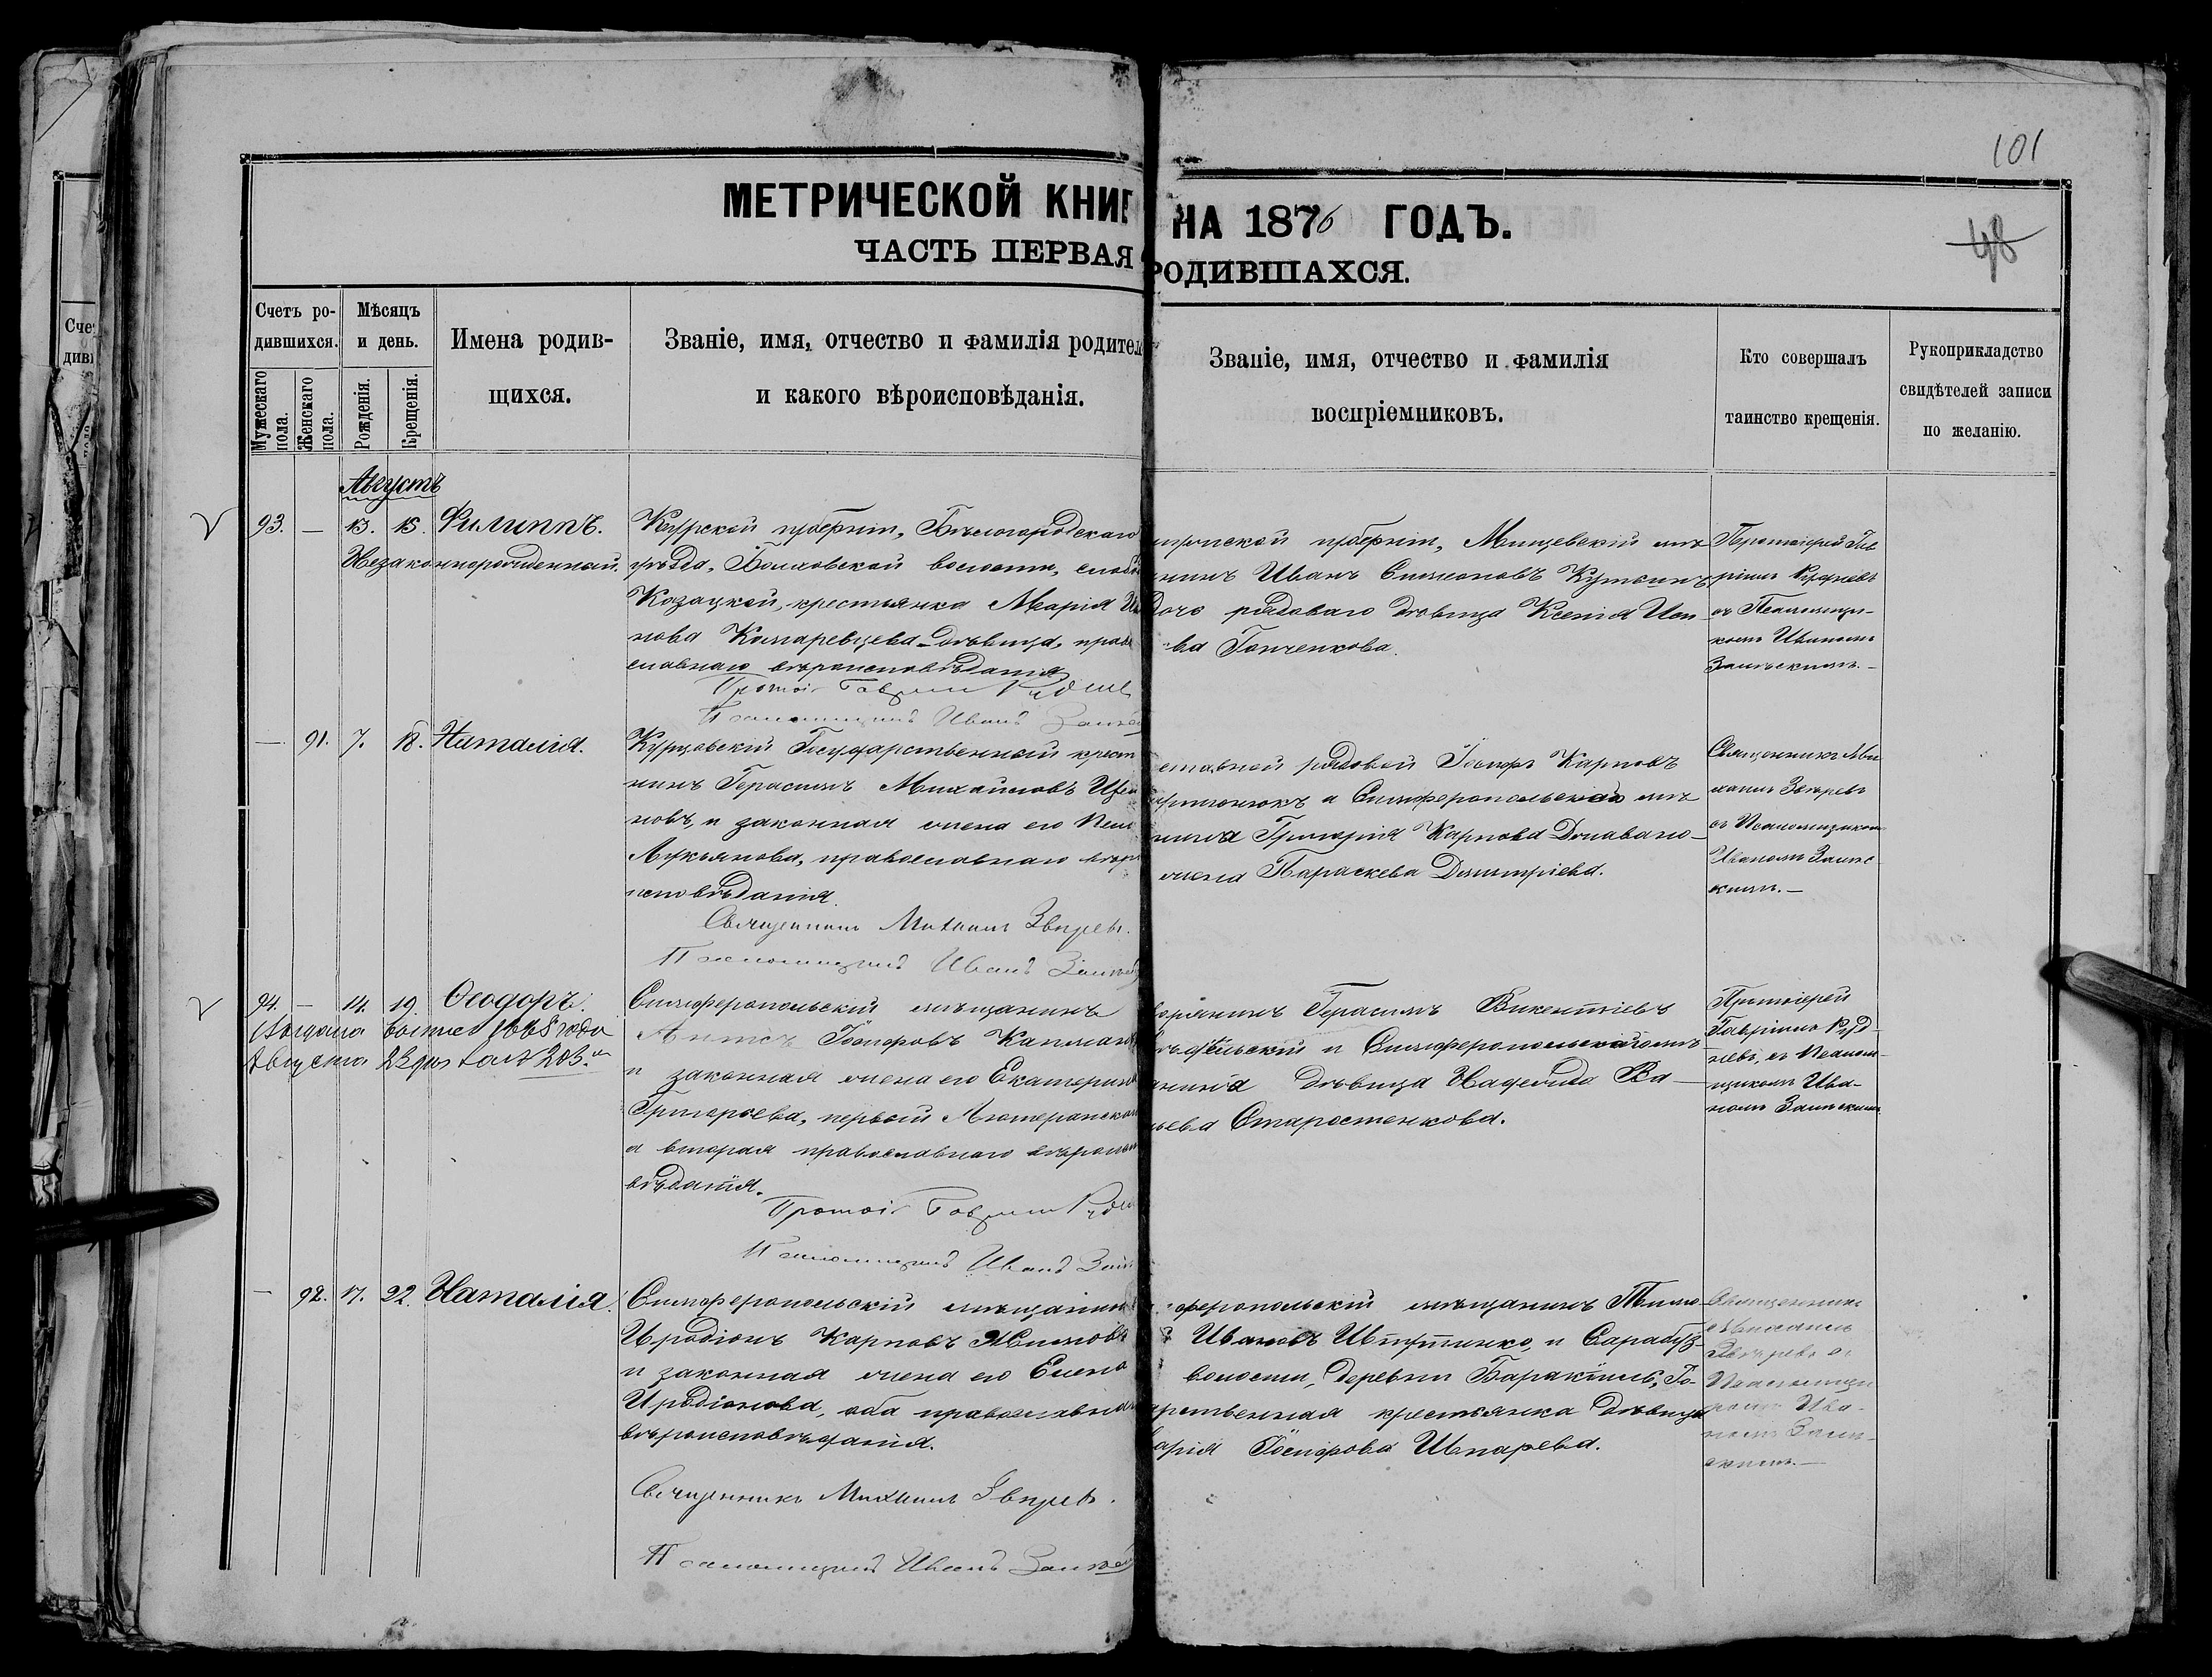 101
МЕТРИЧЕСКОЙ КНИГ НА 1876 ГОДЪ.
48
ЧАСТЬ ПЕРВАЯ РОДИВШАХСЯ.
Счетъ ро-
дившихся.
Мужескаго пола.
Женскаго пола.
Мѣсяцъ
и день.
Рожденія.
Крещенія.
Имена родив-
щихся.
Званіе, имя, отчество и фамилія родител
и какого вѣроисповѣданія.
Званіе, имя, отчество и фамилія
воспріемниковъ.
Кто совершалъ
таинство крещенія.
Рукоприкладство
свидѣтелей записи
по желанію.
Августъ
93. — 13. 15. Филиппъ.
Незаконнорожденный.
Курской губерніи, Бѣлогородскаго
уѣзда, Болховской волости, слобо
Казацкой, крестьянка Марія И
нова Комаревцева девица, право
славнаго вѣроисповѣданія
Протоі Гавріил Руднев
Псаломщикъ Иванъ
губерніи, Мищевскій мѣ
нинъ Иванъ Симеоновъ
рядоваго дѣвица Ксенія
ва Гонченкова.
Протоіерей
съ Псаломщи-
комъ Иваномъ
— 91. 7. 18. Наталія.
Курцовскій Государственный крест
нинъ Герасимъ Михайловъ
новъ, и законная жена его
Лукьянова, православнаго вѣро
исповѣданія.
Священникъ Михаилъ Звѣревъ.
Псаломщикъ Иванъ
ставной рядовой Іосифъ Карповъ
а Симферопольскаго мѣ
нина Григорія Карпова
жена Параскева Димитріева.
Священникъ Ми
хаилъ Звѣревъ
съ Псаломщикомъ
Иваномъ
кимъ. —
94. — 14. 19. Ѳеодоръ.
Выдана
Августа 23 дня за № 203.
Симферопольскій мѣщанинъ
Антонъ Іосифовъ
и законная жена его Екатерина
Григорьева, первый Лютеранскаго
а вторая православнаго вѣроиспо
вѣданія.
Протоі Гавріил Рудн
Псаломщикъ Иванъ
ворянинъ Герасимъ Викентіевъ
и Симферопольскаго мѣ
анина дѣвица Надежда Ва-
ьева Старостенкова.
Протоіерей
Гавріилъ Руд-
невъ, съ Псалом-
щикомъ Ива-
номъ
— 92. 17. 22. Наталія.
Симферопольскій мѣщанинъ
Иродіонъ Карповъ Климовъ
и законная жена его Елена
Иродіонова, оба православна
вѣроисповѣданія.
Священникъ Михаилъ Звѣревъ.
Псаломщикъ Иванъ
феропольскій мѣщанинъ Тимо-
Ивановъ и Сарабуз-
волости, деревни Го-
арственная крестьянка дѣвица
арія Іосифова Шпарева.
Священникъ
Михаилъ
Звѣревъ съ
Псаломщи
комъ Ива-
номъ